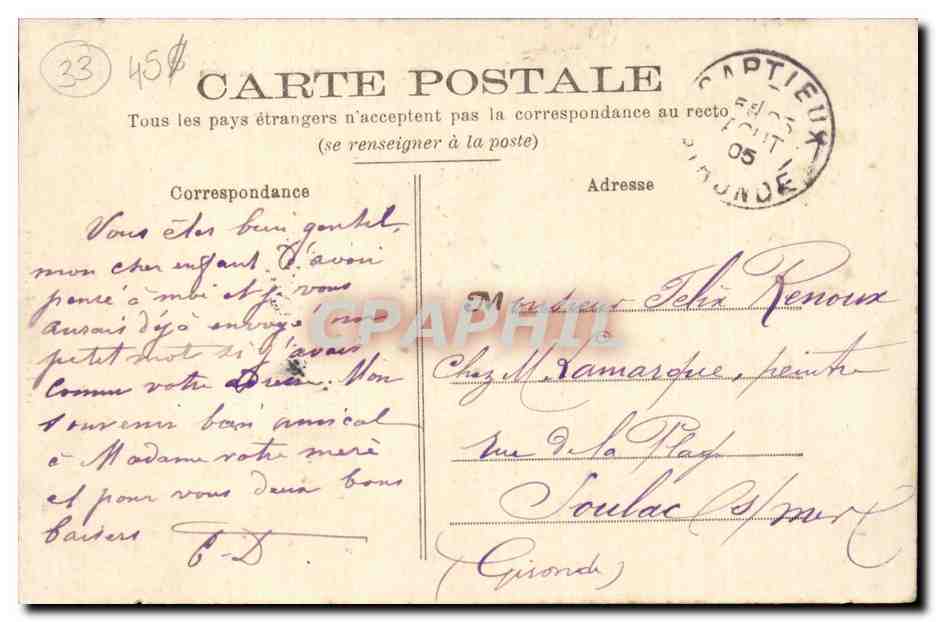 33
45
CARTE POSTALE
Tous les pays étrangers n'acceptent pas la correspondance au recto
(se renseigner à la poste)
CAPTIEUX
AOUT
05
GIRONDE
Correspondance
Vous êtes bien gentil,
mon cher enfant, d'avoir
pensé à moi et je vous
aurais déjà envoyé un
petit mot si j'avais
connu votre adresse. Mon
souvenir bien amical
à Madame votre mère
et pour vous deux bons
baisers
Adresse
Monsieur Félix Renoux
Chez M. Lamarque, peintre
rue de la Plage
Soulac s/mer
(Gironde)
CPAPHIL